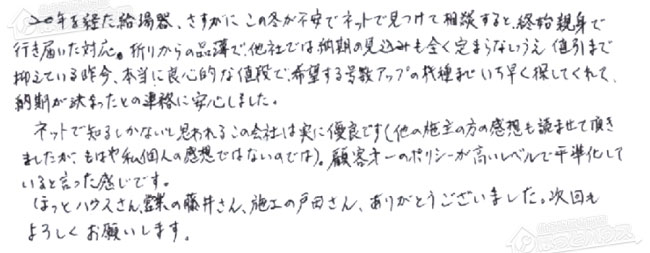 20年を経た給湯器、さすがにこの冬が不安でネットで見つけて相談すると、終始親身で
行き届いた対応。折りからの品薄で、他社では納期の見込みも全く定まらないうえ値引まで
抑えている昨今、本当に良心的な値段で、希望する号数アップの機種までいち早く探してくれて、
納期が決まったとの連絡に安心しました。
ネットで知るしかないし思われるこの会社は実に優良です(他の施主の方の感想も読ませて頂き
ましたが、もはや私個人の感想ではないのでは)。顧客第一のポリシーが高いレベルで平準化して
いると言った感じです。
ほっとハウスさん、営業の藤井さん、施工の戸田さん、ありがとうございました。次回も
よろしくお願いします。